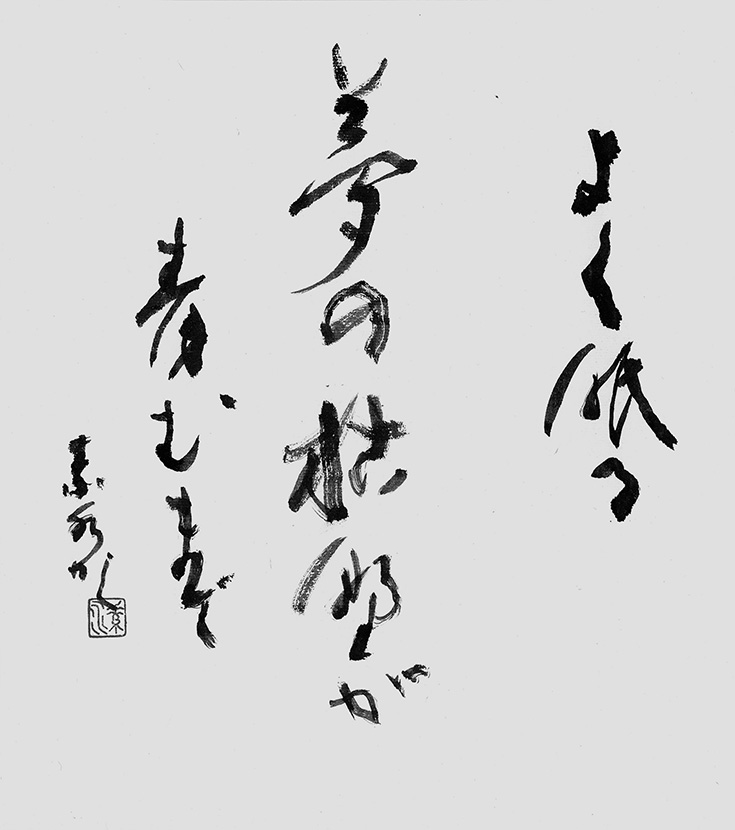 よく眠る
夢の枯野が
青むまで